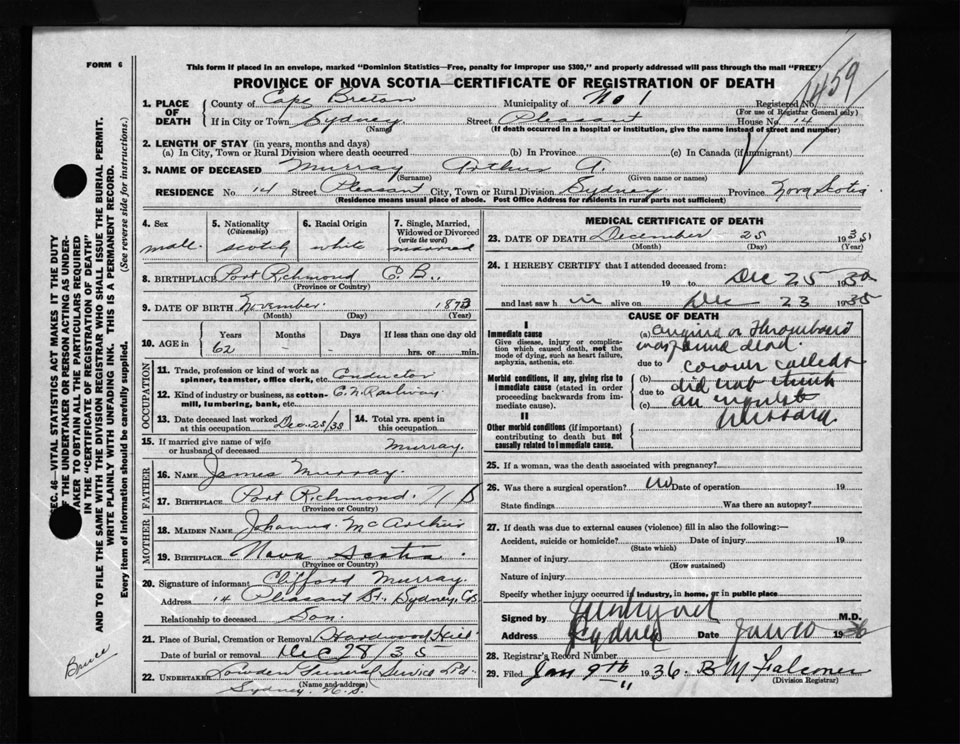 FORM 6
This form if placed in an envelope, marked "Dominion Statistics—Free, penalty for improper use $300," and properly addressed will pass through the mail "FREE"
PROVINCE OF NOVA SCOTIA—CERTIFICATE OF REGISTRATION OF DEATH
1459
1. PLACE OF DEATH
County of Cape Breton Municipality of No 1 Registered No.
(For use of Registrar General only)
If in City or Town Sydney Street Pleasant House No. 14
(Name) (If death occurred in a hospital or institution, give the name instead of street and number)
2. LENGTH OF STAY (in years, months and days)
(a) In City, Town or Rural Division where death occurred (b) In Province (c) In Canada (if immigrant)
3. NAME OF DECEASED Murray Arthur A.
(Surname) (Given name or names)
RESIDENCE No. 14 Street Pleasant City, Town or Rural Division Sydney Province Nova Scotia
(Residence means usual place of abode. Post Office Address for residents in rural parts not sufficient)
4. Sex male
5. Nationality (Citizenship) scotch
6. Racial Origin white
7. Single, Married, Widowed or Divorced (write the word) married
8. BIRTHPLACE Port Richmond C. B.
(Province or Country)
9. DATE OF BIRTH November 1873
(Month) (Day) (Year)
10. AGE in Years Months Days If less than one day old
62 - - hrs. or min.
OCCUPATION
11. Trade, profession or kind of work as spinner, teamster, office clerk, etc. Conductor
12. Kind of industry or business, as cotton-mill, lumbering, bank, etc. C. N Railway
13. Date deceased last worked at this occupation Dec. 25/35
14. Total yrs. spent in this occupation
15. If married give name of wife or husband of deceased Murray
FATHER
16. NAME James Murray.
17. BIRTHPLACE Port Richmond.
(Province or Country)
MOTHER
18. MAIDEN NAME Johanna McArthur
19. BIRTHPLACE Nova Scotia
(Province or Country)
20. Signature of informant Clifford Murray.
Address 14 Pleasant St., Sydney, C.B.
Relationship to deceased Son.
21. Place of Burial, Cremation or Removal Hardwood Hill
Date of burial or removal Dec 28/35
22. UNDERTAKER Lowden Funeral Service Ltd
(Name and Address)
Sydney. N.S.
MEDICAL CERTIFICATE OF DEATH
23. DATE OF DEATH December 25 1935
(Month) (Day) (Year)
24. I HEREBY CERTIFY that I attended deceased from:
19 to Dec 25 1935
and last saw h im alive on Dec 23 1935
CAUSE OF DEATH
I
Immediate cause
Give disease, injury or complication which caused death, not the mode of dying, such as heart failure, asphyxia, asthenia, etc.
Morbid conditions, if any, giving rise to immediate cause (stated in order proceeding backwards from immediate cause).
II
Other morbid conditions (if important) contributing to death but not causally related to immediate cause.
(a) angina or Thrombosis
was found dead.
due to coroner called &
(b) did not think
due to an inquest
(c) necessary.
25. If a woman, was the death associated with pregnancy?
26. Was there a surgical operation? No Date of operation 19
State findings Was there an autopsy?
27. If death was due to external causes (violence) fill in also the following:—
Accident, suicide or homicide? Date of injury 19
(State which)
Manner of injury
(How sustained)
Nature of injury
Specify whether injury occurred in industry, in home, or in public place
Signed by M.D.
Address Sydney Date Jan 10 1936
28. Registrar's Record Number
29. Filed Jan 9th 1936. B M Falconer
(Division Registrar)
SEC. 46—VITAL STATISTICS ACT MAKES IT THE DUTY OF THE UNDERTAKER OR PERSON ACTING AS UNDERTAKER TO OBTAIN ALL THE PARTICULARS REQUIRED IN THE "CERTIFICATE OF REGISTRATION OF DEATH" AND TO FILE THE SAME WITH THE DIVISION REGISTRAR WHO SHALL ISSUE THE BURIAL PERMIT.
WRITE PLAINLY WITH UNFADING INK. THIS IS A PERMANENT RECORD.
Every item of information should be carefully supplied. (See reverse side for instructions.)
Bruce